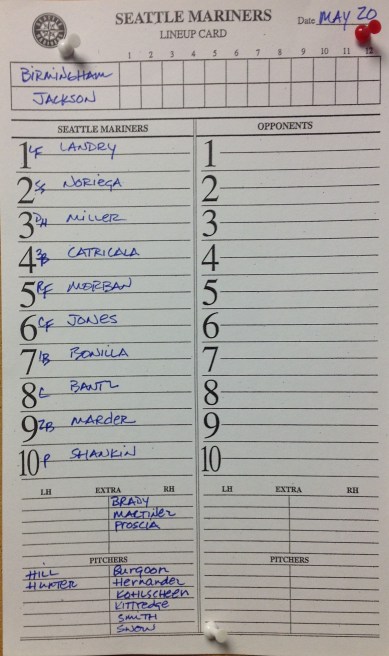 SEATTLE MARINERS
LINEUP CARD
Date MAY 20
1 2 3 4 5 6 7 8 9 10 11 12
BIRMINGHAM
JACKSON
SEATTLE MARINERS
OPPONENTS
1 LF LANDRY
2 SS NORIEGA
3 DH MILLER
4 3B CATRICALA
5 RF MORBAN
6 CF JONES
7 1B BONILLA
8 C BANTZ
9 2B MARDER
10 P SHANKIN
1
2
3
4
5
6
7
8
9
10
LH EXTRA RH
BRADY
MARTINEZ
PROSCIA
PITCHERS
HILL Burgoon
HUNTER Hernandez
KOHLSCHEEN
KITTREDGE
SMITH
SNOW
LH EXTRA RH
PITCHERS